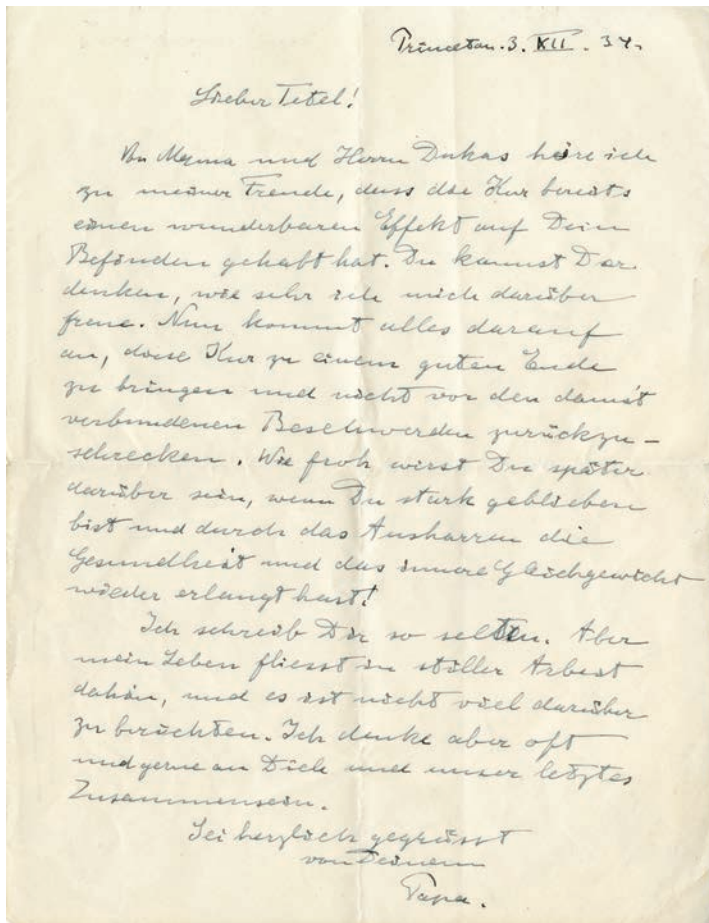 Princeton. 3. XII. 34.
Lieber Tetel!
Von Mama und Herrn Dukas höre ich
zu meiner Freude, dass die Kur bereits
einen wunderbaren Effekt auf Dein
Befinden gehabt hat. Du kannst Dir
denken, wie sehr ich mich darüber
freue. Nun kommt alles darauf
an, diese Kur zu einem guten Ende
zu bringen und nicht vor den damit
verbundenen Beschwerden zurückzu-
schrecken. Wie froh wirst Du später
darüber sein, wenn Du stark geblieben
bist und durch das Ausharren die
Gesundheit und das innere Gleichgewicht
wieder erlangt hast!
Ich schreib Dir so selten. Aber
mein Leben fliesst in stiller Arbeit
dahin, und es ist nicht viel darüber
zu berichten. Ich denke aber oft
und gerne an Dich und unser letztes
Zusammensein.
Sei herzlich gegrüsst
von Deinem
Papa.